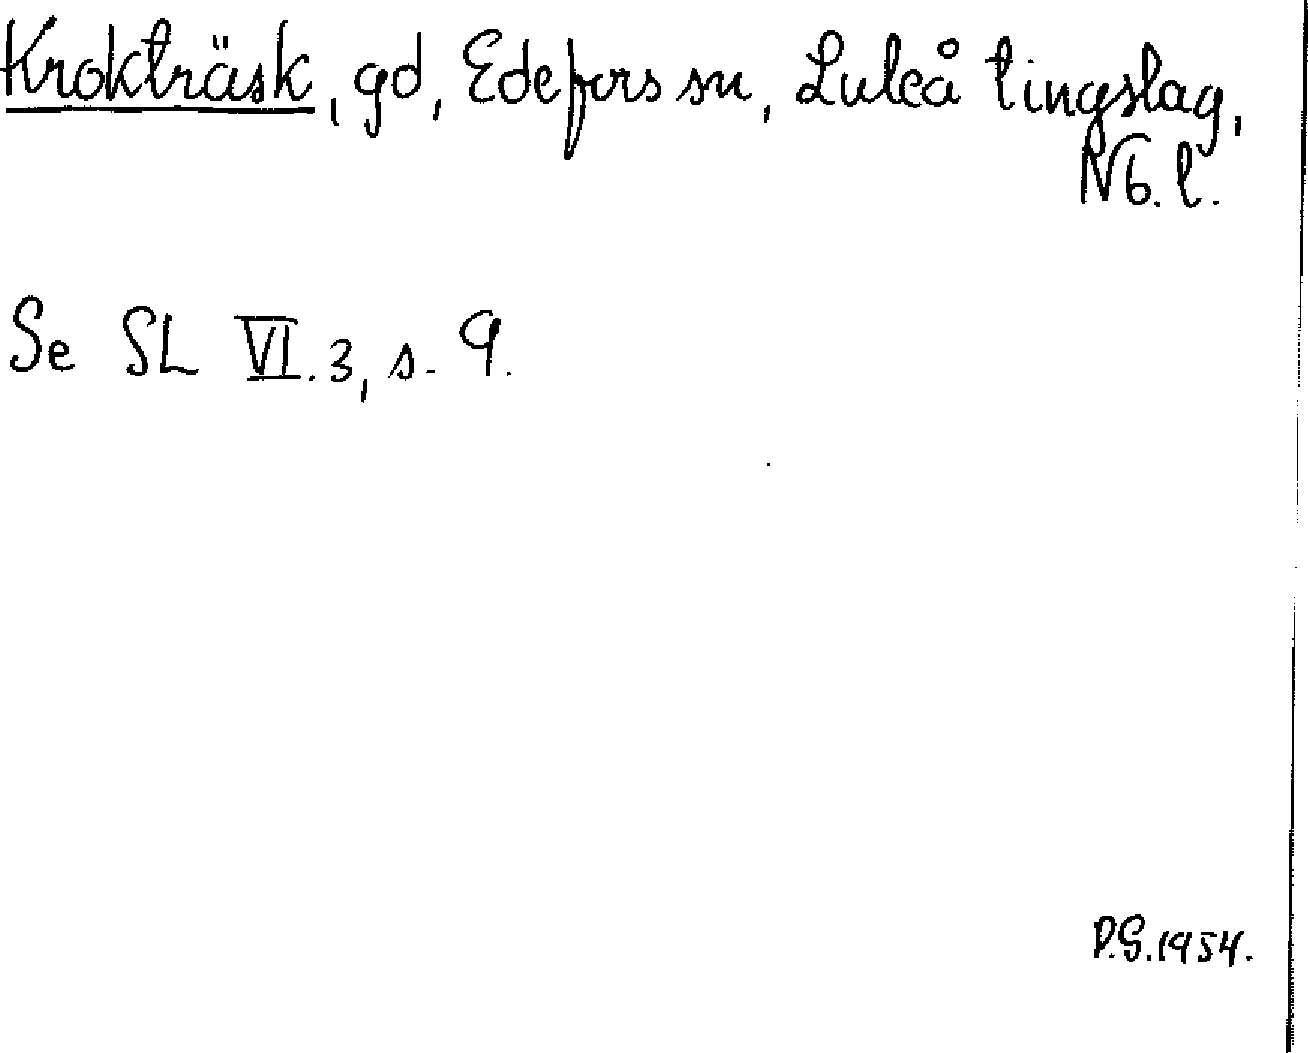 Krokträsk, gd, Edefors sn, Luleå tingslag,
Nb. l.
Se SL VI.3, s. 9.
P.S. 1954.